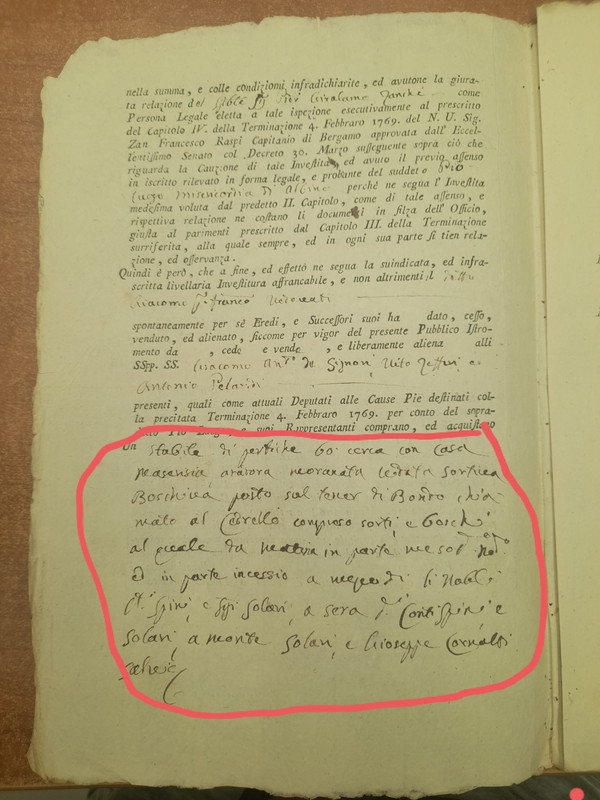 nella summa, e colle condizioni infradichiarite, ed avutone la giura-
ta relazione del Girolamo Zanchi come
Persona Legale eletta a tale ispezione esecutivamente al prescritto
del Capitolo IV. della Terminazione 4. Febbraro 1769. del N. U. Sig.
Zan Francesco Raspi Capitanio di Bergamo approvata dall' Eccel-
lentissimo Senato col Decreto 30. Marzo susseguente sopra ciò che
riguarda la Cauzione di tale Investita, ed avuto il previo assenso
in iscritto rilevato in forma legale, e probante del suddetto Pio
Luogo Misericordia di Albino perchè ne segua l' Investita
medesima voluta dal predetto II. Capitolo, come di tale assenso, e
rispettiva relazione ne costano li documenti in filza dell' Officio,
giusta al parimenti prescritto dal Capitolo III. della Terminazione
surriferita, alla quale sempre, ed in ogni sua parte si tien rela-
zione, ed osservanza.
Quindi è però, che a fine, ed effetto ne segua la suindicata, ed infra-
scritta livellaria Investitura affrancabile, e non altrimenti, il detto
Giacomo
spontaneamente per sè Eredi, e Successori suoi ha dato, cesso,
venduto, ed alienato, siccome per vigor del presente Pubblico Istro-
mento da , cede e vende , e liberamente aliena alli
SSpp. SS. Giacomo Ant.º de Signori, Vito e
Antonio Pelandi
presenti, quali come attuali Deputati alle Cause Pie destinati col-
la precitata Terminazione 4. Febbraro 1769. per conto del sopra-
Rappresentanti comprano, ed acquistano
Un stabile di pertiche 60 cerca con casa
masansiva aratora moronata vidata sortiva
Boschiva posto sul tener di Bondo chia
mato al Cedrello compreso sorti, e boschi
al quale da matina in parte
ed in parte incessio a mezodi li Nobili
Spini e Solari, a sera Conti Spini e
Solari, a monte Solari, e Gioseppe Cornolti
salvis